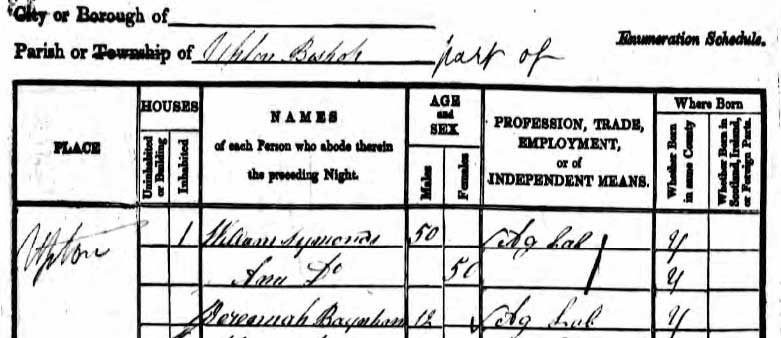 City or Borough of
Parish or Township of Upton Bishop part of
Enumeration Schedule.
PLACE
HOUSES
Uninhabited or Building
Inhabited
NAMES
of each Person who abode therein
the preceding Night.
AGE
and
SEX
Males
Females
PROFESSION, TRADE,
EMPLOYMENT,
or of
INDEPENDENT MEANS.
Where Born
Whether Born in same County
Whether Born in Scotland, Ireland, or Foreign Parts.
Upton 1 William Symonds 50 Ag Lab Y
Ann Do 50 Y
Jeremiah Baynham 12 Ag Lab Y